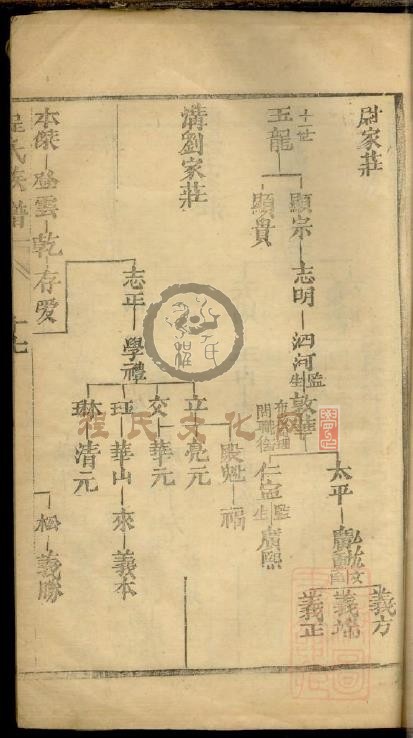 尉家莊
十一世
玉龍
顯宗 志明 泗河 監生 敦華
太平 廣
義方
義端
義正
仁 監生 廣熙
顯貴
殿魁 福
溝劉家莊
志正 學禮
立 亮元
交 華元
珏 華山 來 義本
琳 清元
本傑 登雲 乾 存愛
松 義勝
程氏族譜
程氏文化网